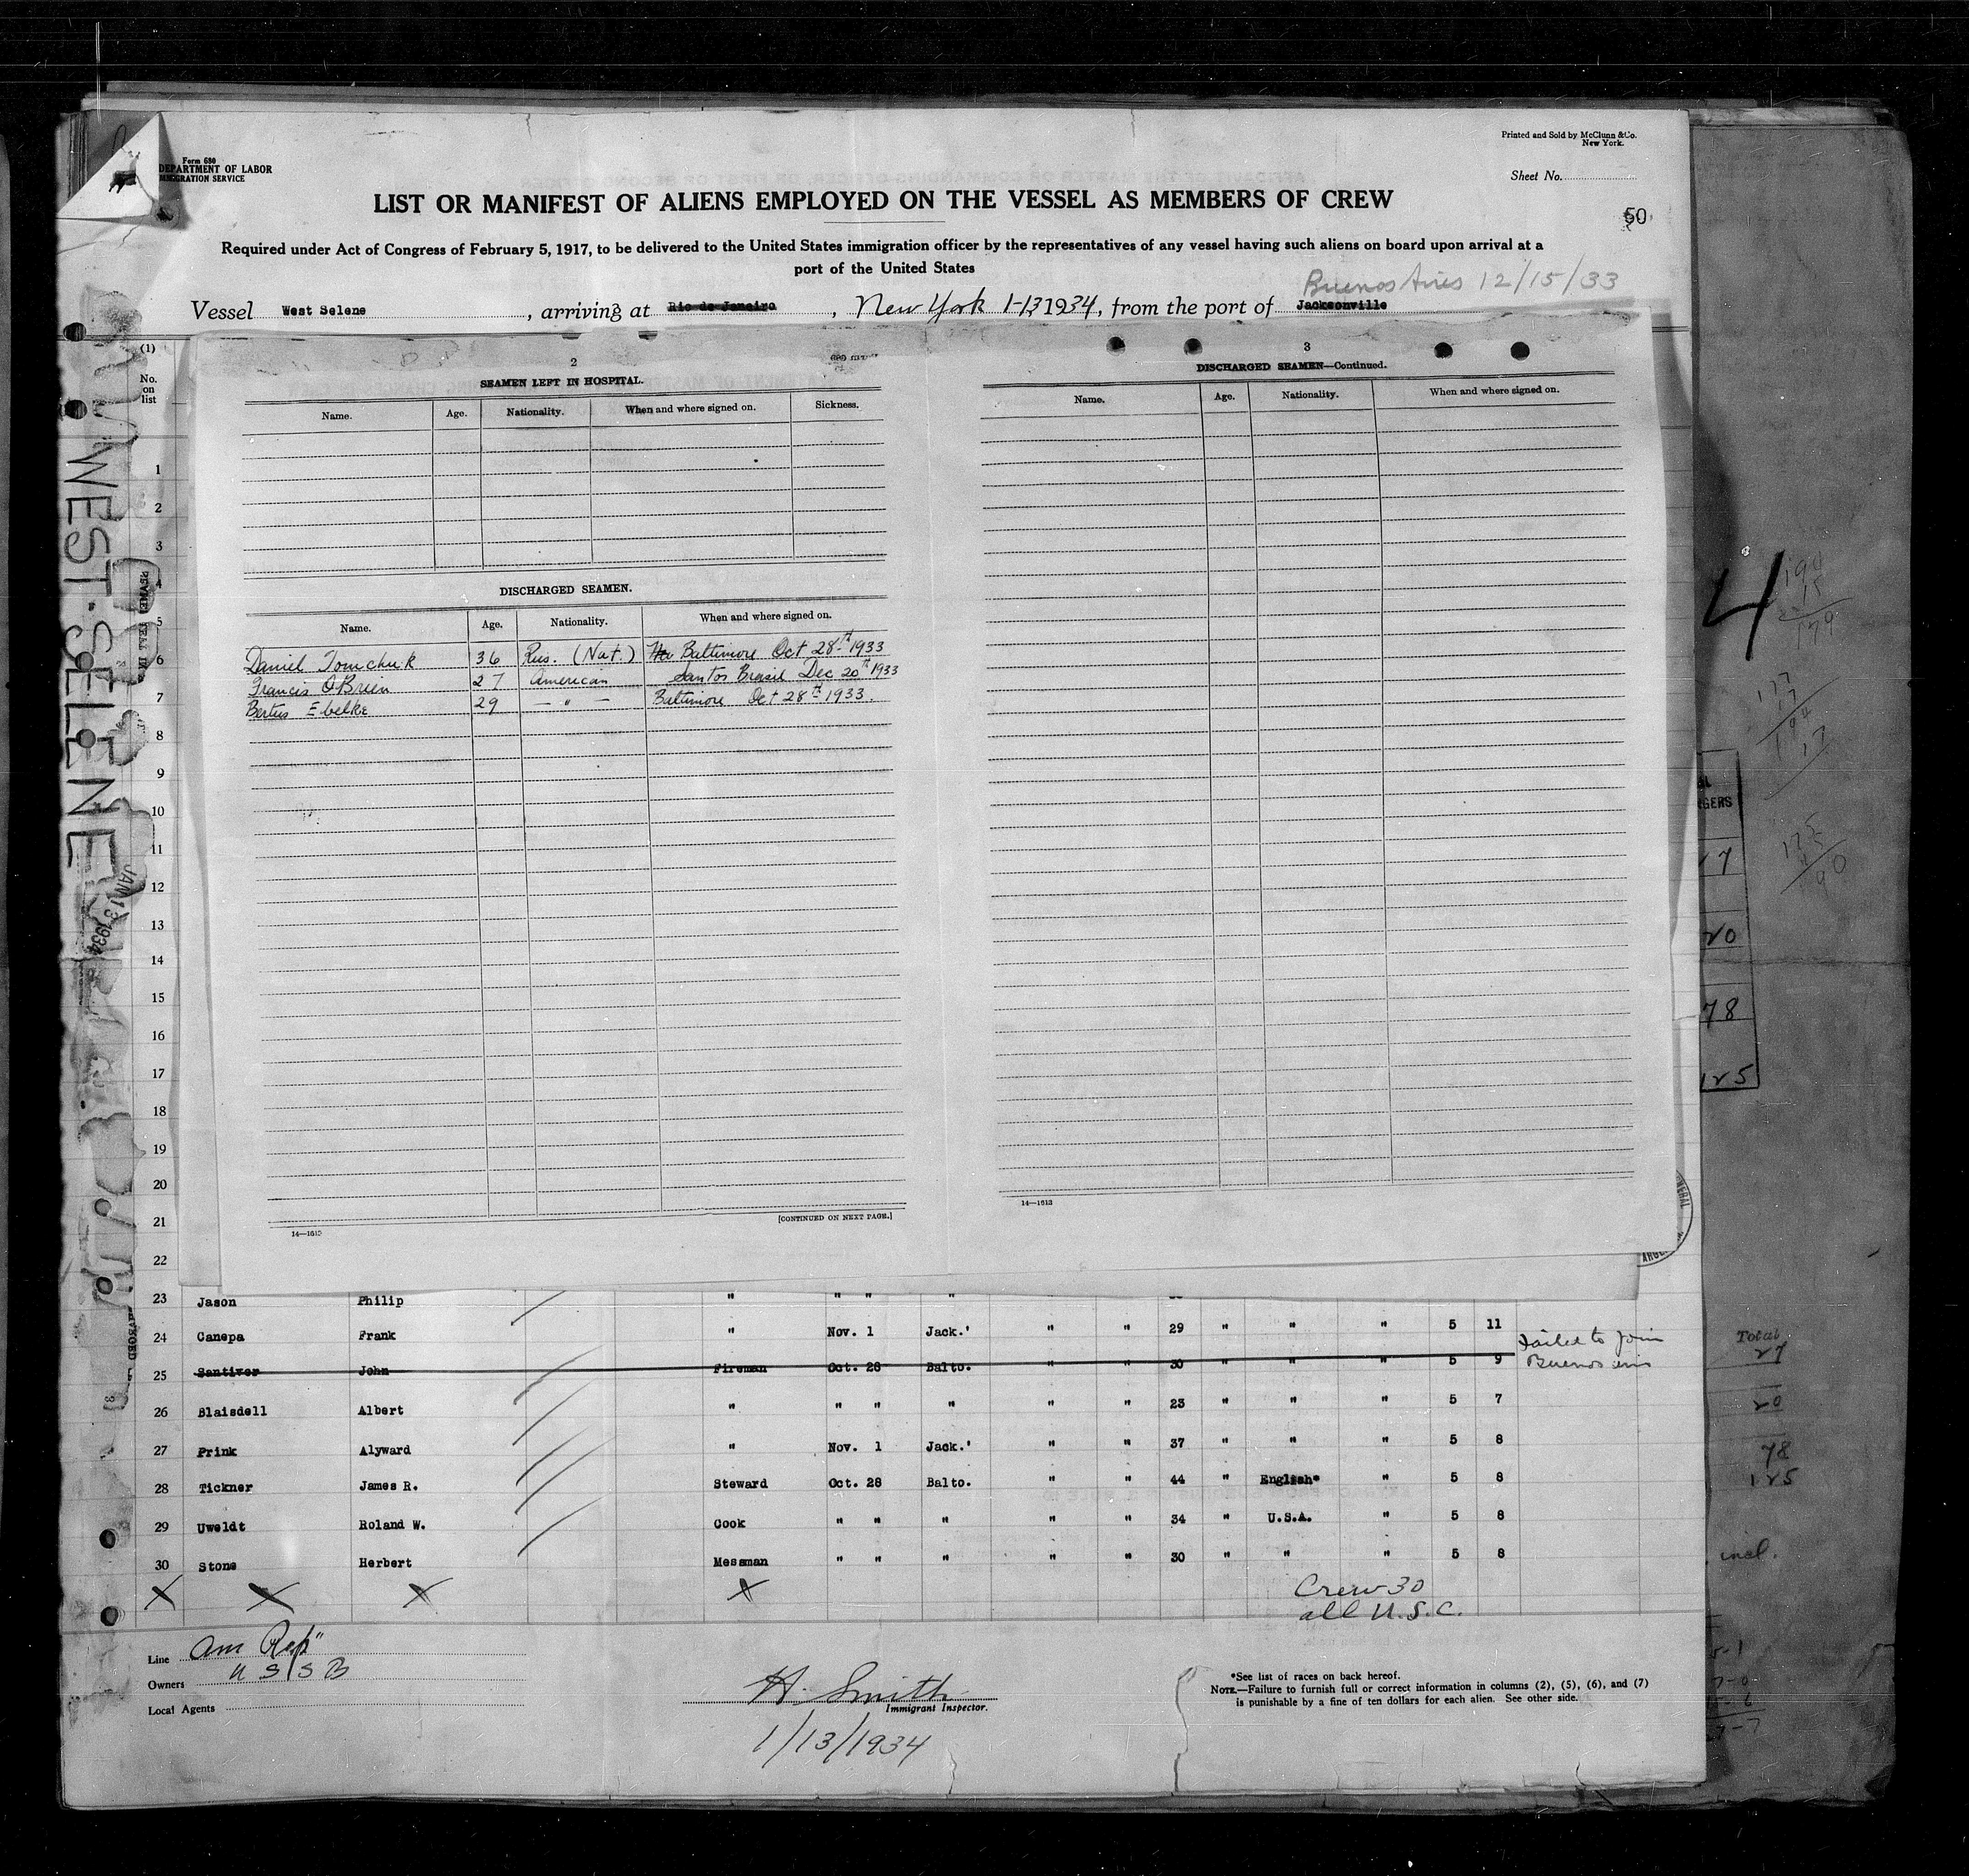 Form 680
DEPARTMENT OF LABOR
IMMIGRATION SERVICE
Printed and Sold by McClunn & Co.
New York.
Sheet No.
LIST OR MANIFEST OF ALIENS EMPLOYED ON THE VESSEL AS MEMBERS OF CREW
50
Required under Act of Congress of February 5, 1917, to be delivered to the United States immigration officer by the representatives of any vessel having such aliens on board upon arrival at a
port of the United States
Buenos Aires 12/15/33
Vessel West Selene, arriving at Rio de Janeiro, New York 1-13 1934, from the port of Jacksonville
(1)
No. on list
WEST-SELENE
JAN 13 1934
2
SEAMEN LEFT IN HOSPITAL.
Name. Age. Nationality. When and where signed on. Sickness.
DISCHARGED SEAMEN.
Name. Age. Nationality. When and where signed on.
Daniel Tomchuk 36 Rus. (Nat.) Baltimore Oct 28th 1933
Francis O'Brien 27 American Santos Brasil Dec 20th 1933
Bertus Ebelke 29 — " — Baltimore Oct 28th 1933.
[CONTINUED ON NEXT PAGE.]
3
DISCHARGED SEAMEN—Continued.
Name. Age. Nationality. When and where signed on.
14—1613
1
2
3
4
5
6
7
8
9
10
11
12
13
14
15
16
17
18
19
20
21
22
23 Jason Philip " " " "
24 Canepa Frank " Nov. 1 Jack.' " " 29 " " " 5 11
25 Santiver John Fireman Oct. 28 Balto. " " 30 " " " 5 9 Failed to join Buenos Aires
26 Blaisdell Albert " " " " " " 23 " " " 5 7
27 Prink Alyward " Nov. 1 Jack.' " " 37 " " " 5 8
28 Tickner James R. Steward Oct. 28 Balto. " " 44 " English* " 5 8
29 Uweldt Roland W. Cook " " " " " 34 " U.S.A. " 5 8
30 Stone Herbert Messman " " " " " 30 " " " 5 8
X X X X
Crew 30
all U.S.C.
Line Am Rep"
Owners U S S B
Local Agents
H. Smith
Immigrant Inspector.
1/13/1934
*See list of races on back hereof.
NOTE.—Failure to furnish full or correct information in columns (2), (5), (6), and (7)
is punishable by a fine of ten dollars for each alien. See other side.
4
Total
27
20
78
125
incl.